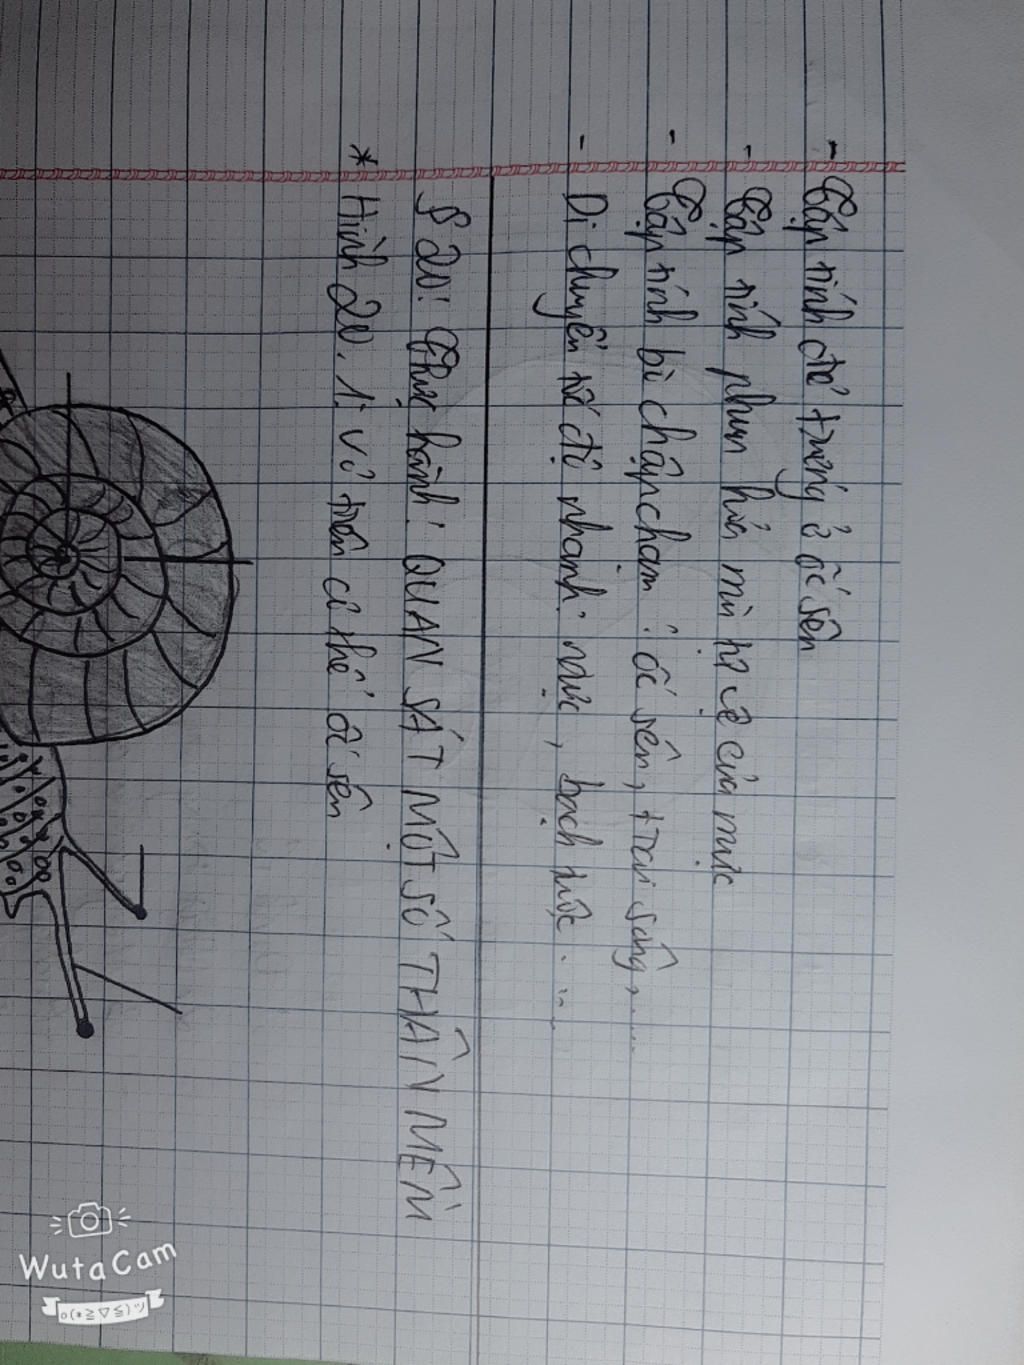 - Tập tính đẻ trứng ở ốc sên
- Tập tính phun hỏa mù tự vệ của mực
- Tập tính bò chậm chạm: ốc sên, trai sông, ...
- Di chuyển tốc độ nhanh: mực, bạch tuộc.....
§ 20: Thực hành: QUAN SÁT MỘT SỐ THÂN MỀM
* Hình 20.1: vỏ trên cơ thể ốc sên
WutaCam
o(*≧▽≦)ツ